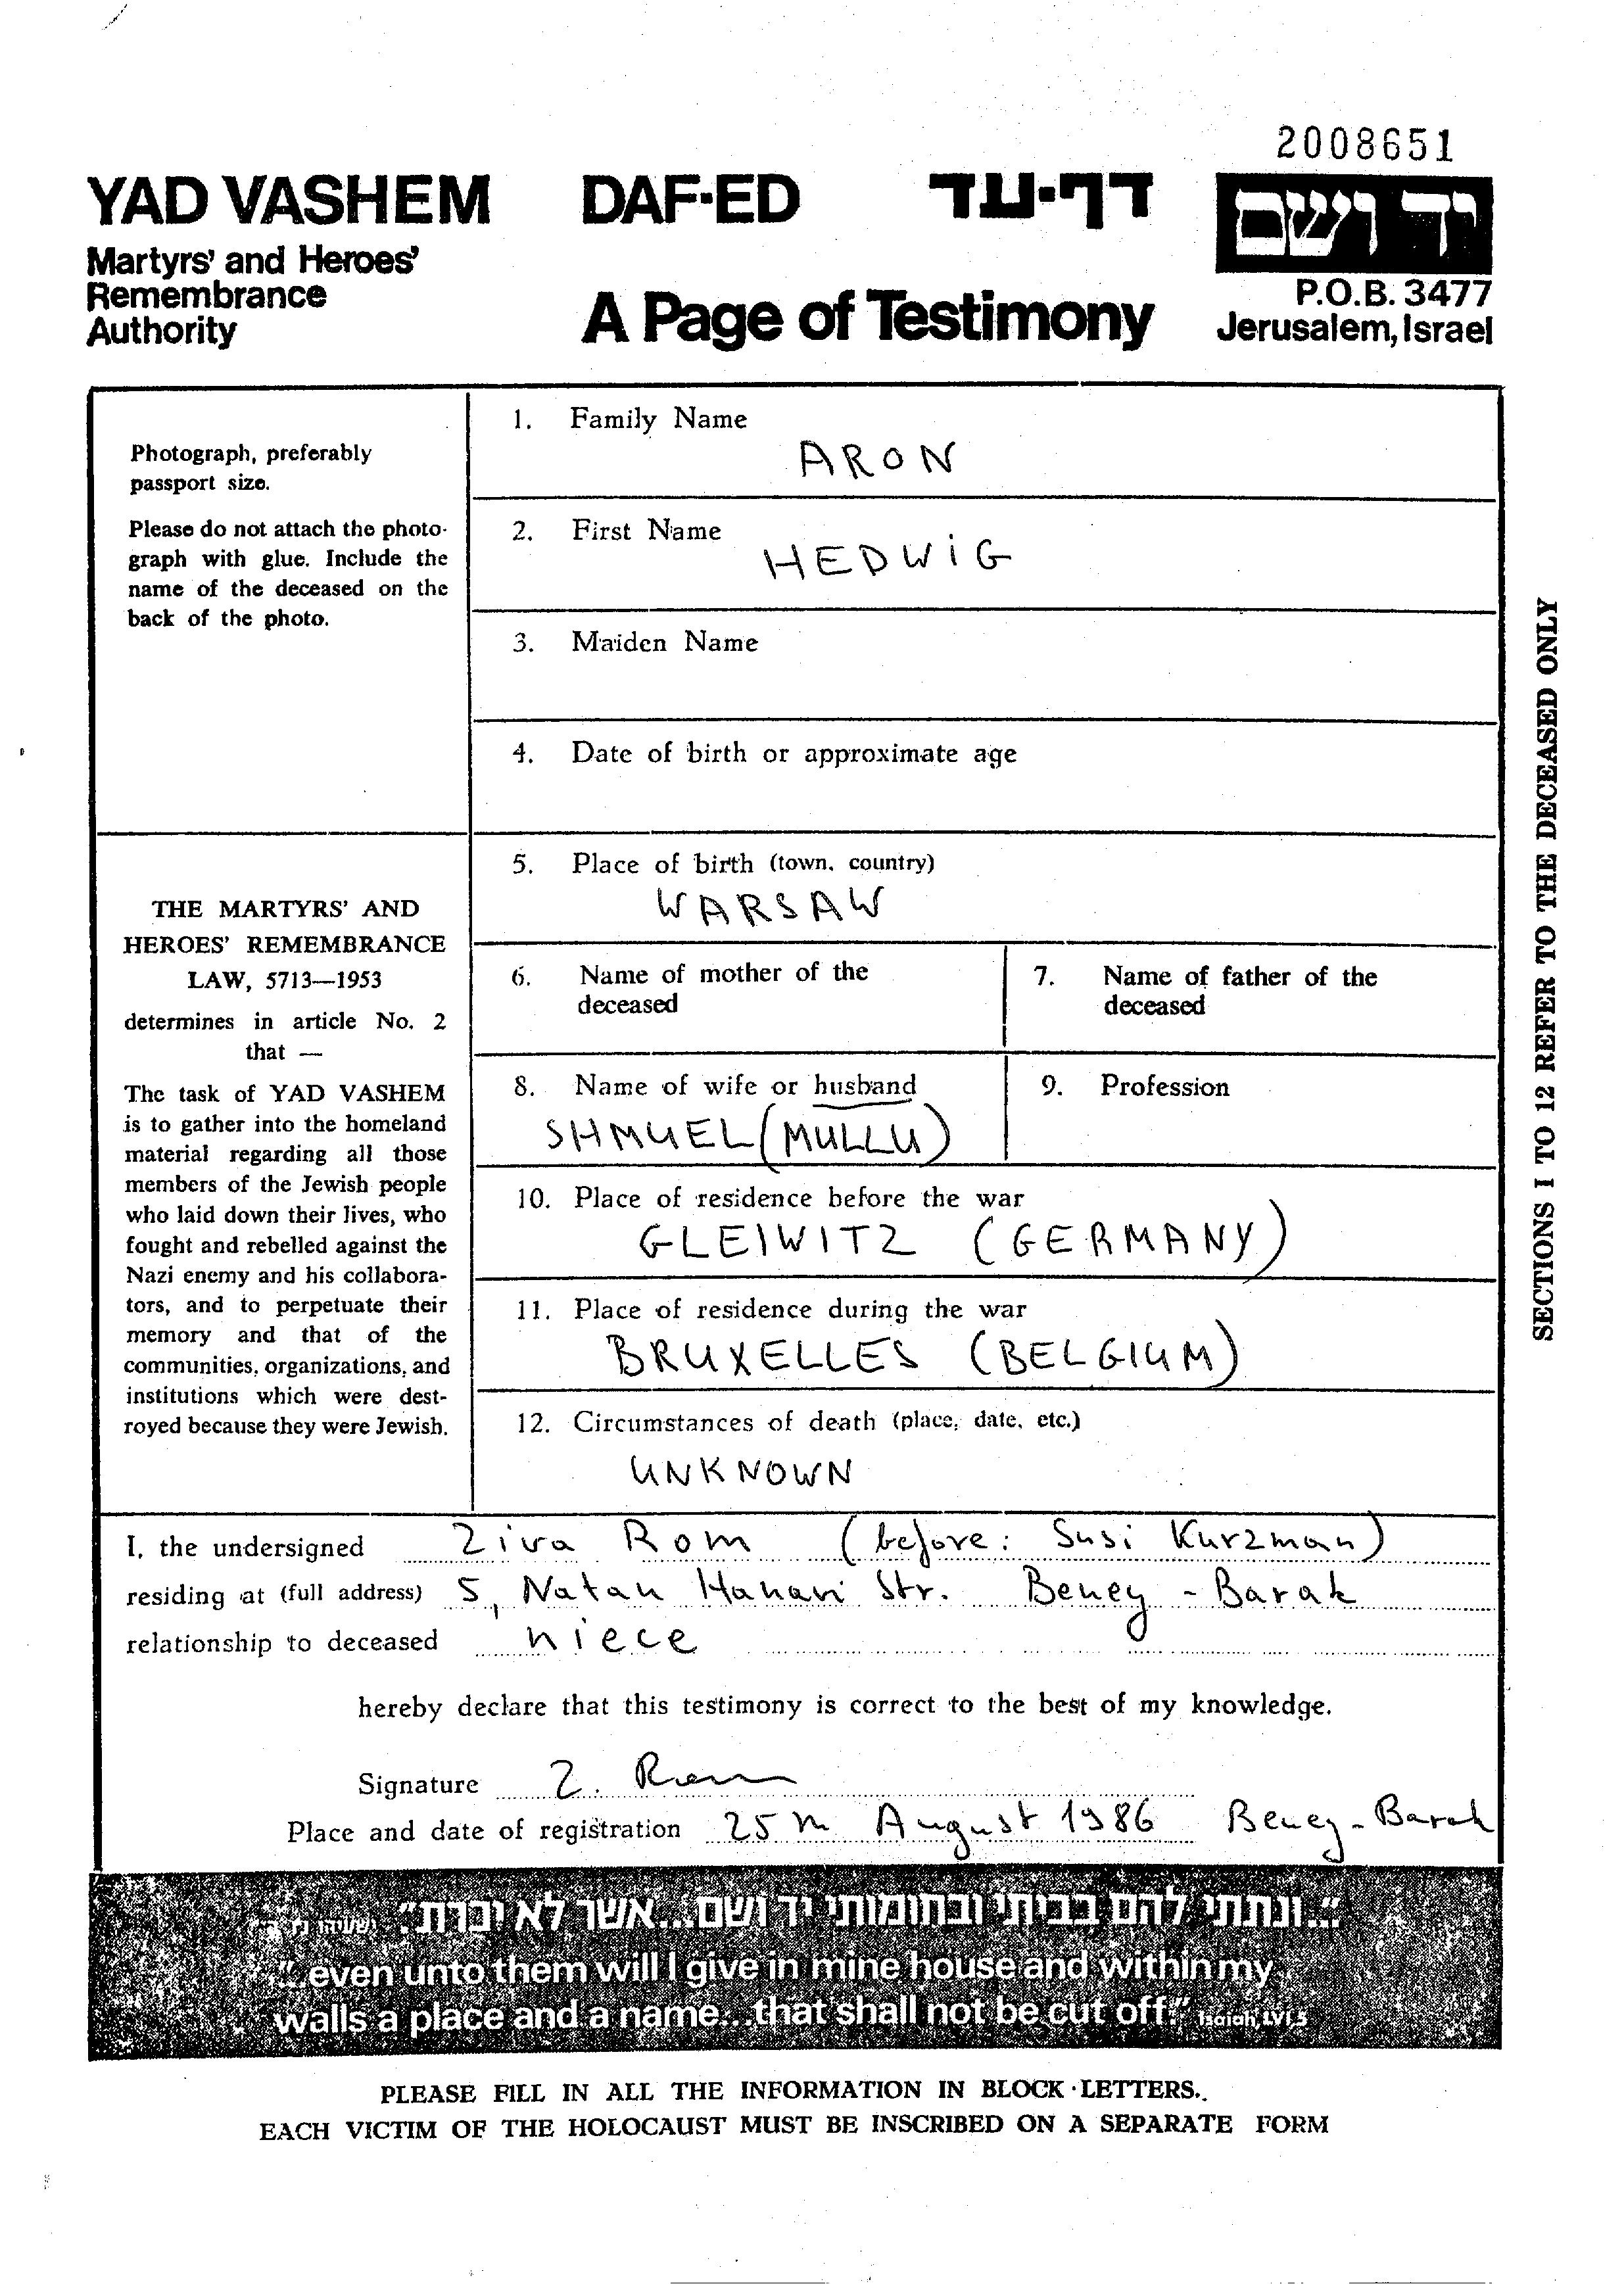 2008651
YAD VASHEM
Martyrs' and Heroes'
Remembrance
Authority
DAF-ED
דף-עד
A Page of Testimony
יד ושם
P.O.B. 3477
Jerusalem, Israel
Photograph, preferably
passport size.
Please do not attach the photo-
graph with glue. Include the
name of the deceased on the
back of the photo.
THE MARTYRS' AND
HEROES' REMEMBRANCE
LAW, 5713—1953
determines in article No. 2
that —
The task of YAD VASHEM
is to gather into the homeland
material regarding all those
members of the Jewish people
who laid down their lives, who
fought and rebelled against the
Nazi enemy and his collabora-
tors, and to perpetuate their
memory and that of the
communities, organizations, and
institutions which were dest-
royed because they were Jewish.
1. Family Name
ARON
2. First Name
HEDWiG
3. Maiden Name
4. Date of birth or approximate age
5. Place of birth (town, country)
WARSAW
6. Name of mother of the
deceased
7. Name of father of the
deceased
8. Name of wife or husband
SHMUEL (MULLU)
9. Profession
10. Place of residence before the war
GLEIWITZ (GERMANY)
11. Place of residence during the war
BRUXELLES (BELGIUM)
12. Circumstances of death (place, date, etc.)
UNKNOWN
SECTIONS 1 TO 12 REFER TO THE DECEASED ONLY
I, the undersigned Ziva Rom (before: Susi Kurzman)
residing at (full address) 5, Natan Hanavi Str. Beney - Barak
relationship to deceased niece
hereby declare that this testimony is correct to the best of my knowledge.
Signature Z. Rom
Place and date of registration 25th August 1986 Beney - Barak
"...ונתתי להם בביתי ובחומותי יד ושם...אשר לא יכרת" ישעיהו נו, ה
"...even unto them will I give in mine house and within my
walls a place and a name...that shall not be cut off." Isaiah, LVI, 5
PLEASE FILL IN ALL THE INFORMATION IN BLOCK LETTERS.
EACH VICTIM OF THE HOLOCAUST MUST BE INSCRIBED ON A SEPARATE FORM